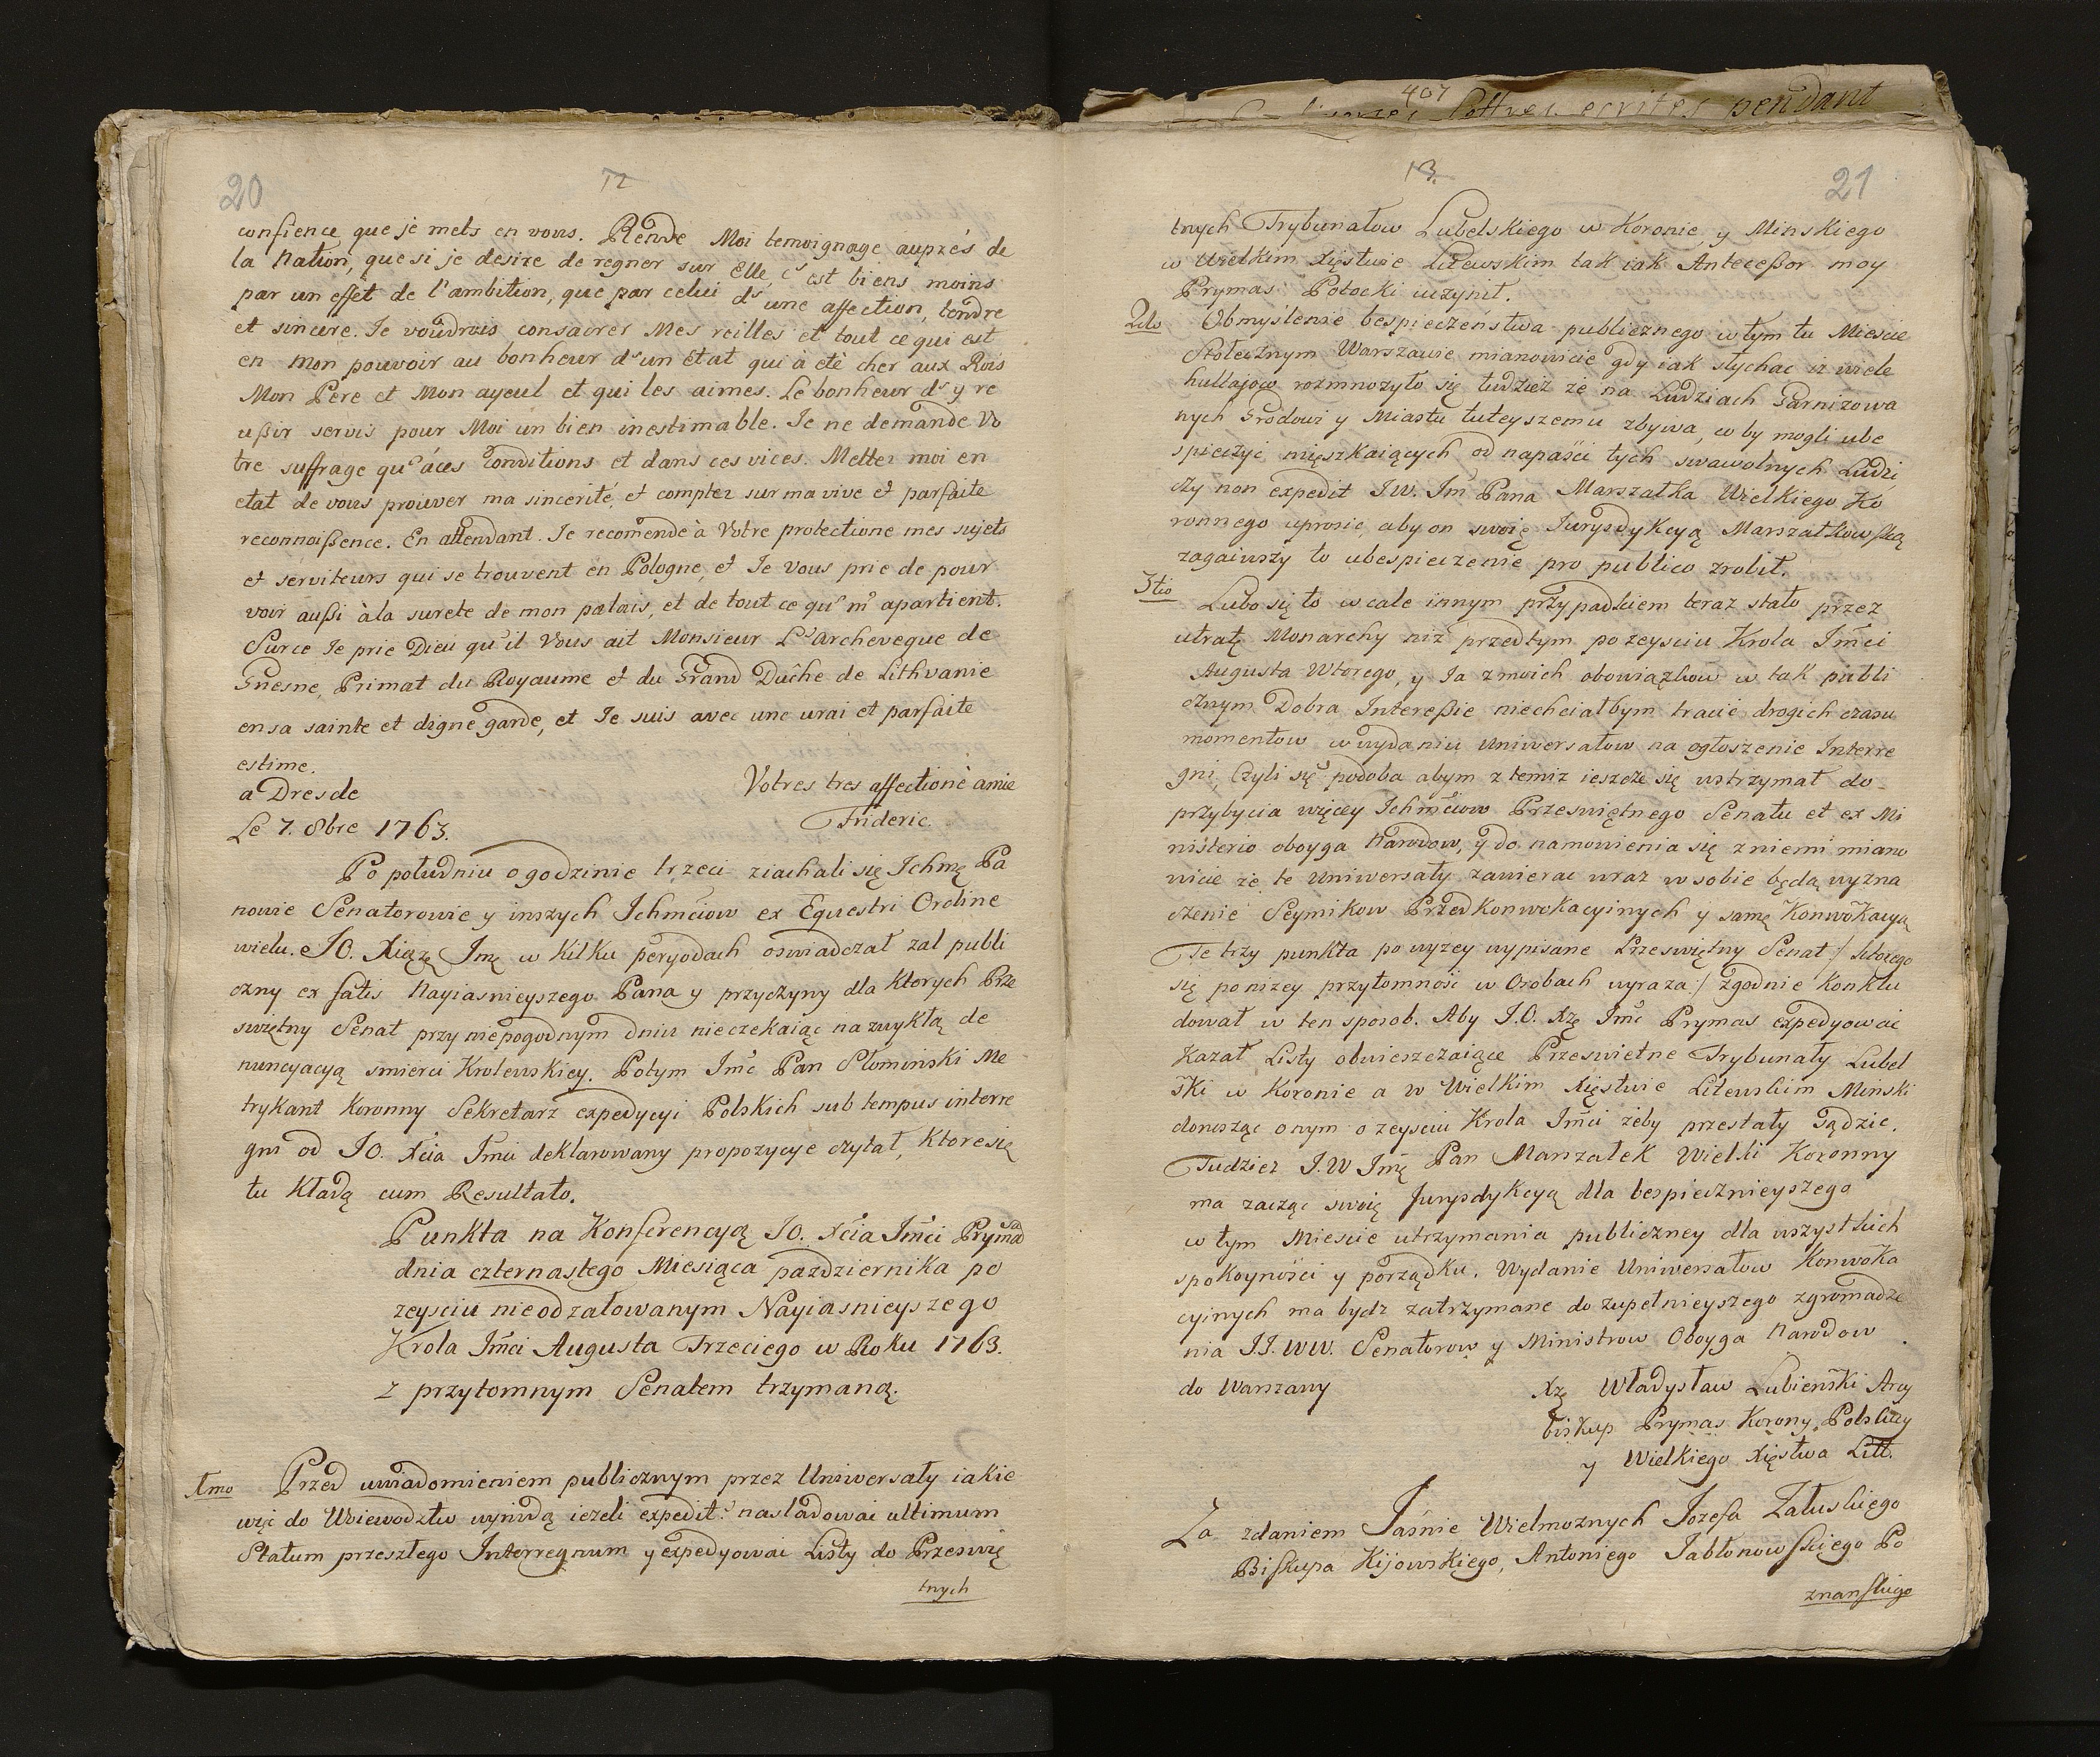 20
12
confience que je mets en vous. Rende Moi temoignage auprés de
la Nation, que si je desire de regner sur Elle, c'est biens moins
par un effet de l'ambition, que par celui d'une affection, tendre
et sincere. Je voudrois consacrer Mes veilles et tout ce qui est
en mon pouvoir au bonheur d'un état qui à eté cher aux Rois
Mon Pere et Mon ayeul et qui les aimes. Le bonheur d'y re
ußir servis pour Moi un bien inestimable. Je ne demande Vo
tre suffrage qu'áces Conditions et dans ces vices. Mettez moi en
etat de vous prouver ma sincerité, et comptez sur ma vive et parfaite
reconnoißence. En attendant. Je recomende à Votre protectione mes sujets
et serviteurs qui se trouvent en Pologne, et Je vous prie de pour
voir außi à la surete de mon palais, et de tout ce qu' m' apartient.
Surce Je prie Dieu qu'il Vous ait Monsieur L'Archeveque de
Gnesne, Primat du Royaume et du Grand Dûche de Lithvanie
ensa sainte et digne garde, et Je suis avec une vrai et parfaite
estime.
Votres tres affectioné amie
a Dresde
Le 7. 8bre 1763.
Frideric.
Po południu o godzinie trzeci ziachali się Ichmę Pa
nowie Senatorowie y inszych Ichmciow ex Equestri Ordine
wielu. JO. Xiążę Imę w kilku peryodach oswiadczał zal publi
czny ex fatis Nayiasnieyszego Pana y przyczyny dla ktorych Prze
swiętny Senat przy niepogodnym dniu nieczekaiąc na zwykłą de
nuncyacyą smierci Krolewskiey. Potym Imć Pan Słominski Me
trykant Koronny Sekretarz expedycyi Polskich sub tempus interre
gni od JO. Xcia Imci deklarowany propozycye czytał, ktore się
tu kładą cum Resultato.
Punkta na Konferencyą JO. Xcia Imći Prymasa
dnia czternastego Miesiąca pazdziernika po
zeysciu nieodzałowanym Nayiasnieyszego
Krola Imći Augusta Trzeciego w Roku 1763.
z przytomnym Senatem trzymaną.
1mo Przed uwiadomieniem publicznym przez Uniwersały iakie
więc do Woiewodztw wynidą ieżeli expedit? nasladowai ultimum
Statum przeszłego Interregnum y expedyowai Listy do Przeswię
tnych
407
Lettres ecrites pendant
13.
21
tnych Trybunałow Lubelskiego w Koronie, y Minskiego
w Wielkim Xięstwie Litewskim tak iak Anteceßor moy
Prymas Potocki uczynił.
2do Obmyslenie bespieczeństwa publicznego w tym tu Miescie
Stołecznym Warszawie mianowicie gdy iak słychac iz wiele
hultajow rozmnozyło się tudziez ze na Ludziach Garnizowa
nych Grodowi y Miastu tuteyszemu zbywa, co by mogli ube
spieczyć mięszkaiących od napaści tych swawolnych Ludzi
czy non expedit J.W. Im Pana Marszałka Wielkiego Ko
ronnego uprosic, aby on swoię Jurysdykcyą Marszałkowską
zagaiwszy to ubespieczenie pro publico zrobił.
3tio Lubo się to wcale innym przypadkiem teraz stało przez
utratę Monarchy niz przedtym po zeysciu Krola Imći
Augusta Wtorego, y Ja z moich obowiązkow w tak publi
cznym Dobra Intereßie niechciałbym tracic drogich czasu
momentow w wydaniu Uniwersałow na ogłoszenie Interre
gni, Czyli się podoba abym z temiz ieszcze się wstrzymał do
przybycia więcey Ichmćiow Przeswiętnego Senatu et ex Mi
nisterio oboyga Narodow, y do namowienia się z niemi miano
wicie że te Uniwersały zawierac wraz w sobie będą wyzna
czenie Seymikow Przedkonwokacyinych y samę Konwokacyą
Te trzy punkta powyzey wypisane Przeswiętny Senat :/ ktorego
się ponizey przytomność w Osobach wyraza :/ zgodnie konklu
dował w ten sposob. Aby J.O. Xzę Imć Prymas expedyowai
kazał Listy obwieszczaiące Przeswietne Trybunały Lubel
ski w Koronie a w Wielkim Xięstwie Litewskim Minski
donosząc onym o zeysciu Krola Imći zeby przestały Sądzic.
Tudziez J.W Imę Pan Marszałek Wielki Koronny
ma zacząc swoię Jurysdykcyą dla bespiecznieyszego
w tym Miescie utrzymania publiczney dla wszystkich
spokoyności y porządku. Wydanie Uniwersałow Konwoka
cyinych ma bydz zatrzymane do zupełnieyszego zgromadze
nia JJ. WW. Senatorow y Ministrow Oboyga Narodow.
do Warszawy
Xzę Władysław Lubieński Arcy
biskup Prymas Korony Polskiey
y Wielkiego Xięstwa Litt.
Za zdaniem Jaśnie Wielmoznych Jozefa Załuskiego
Biskupa Kijowskiego, Antoniego Jabłonowskiego Po
znanskiego